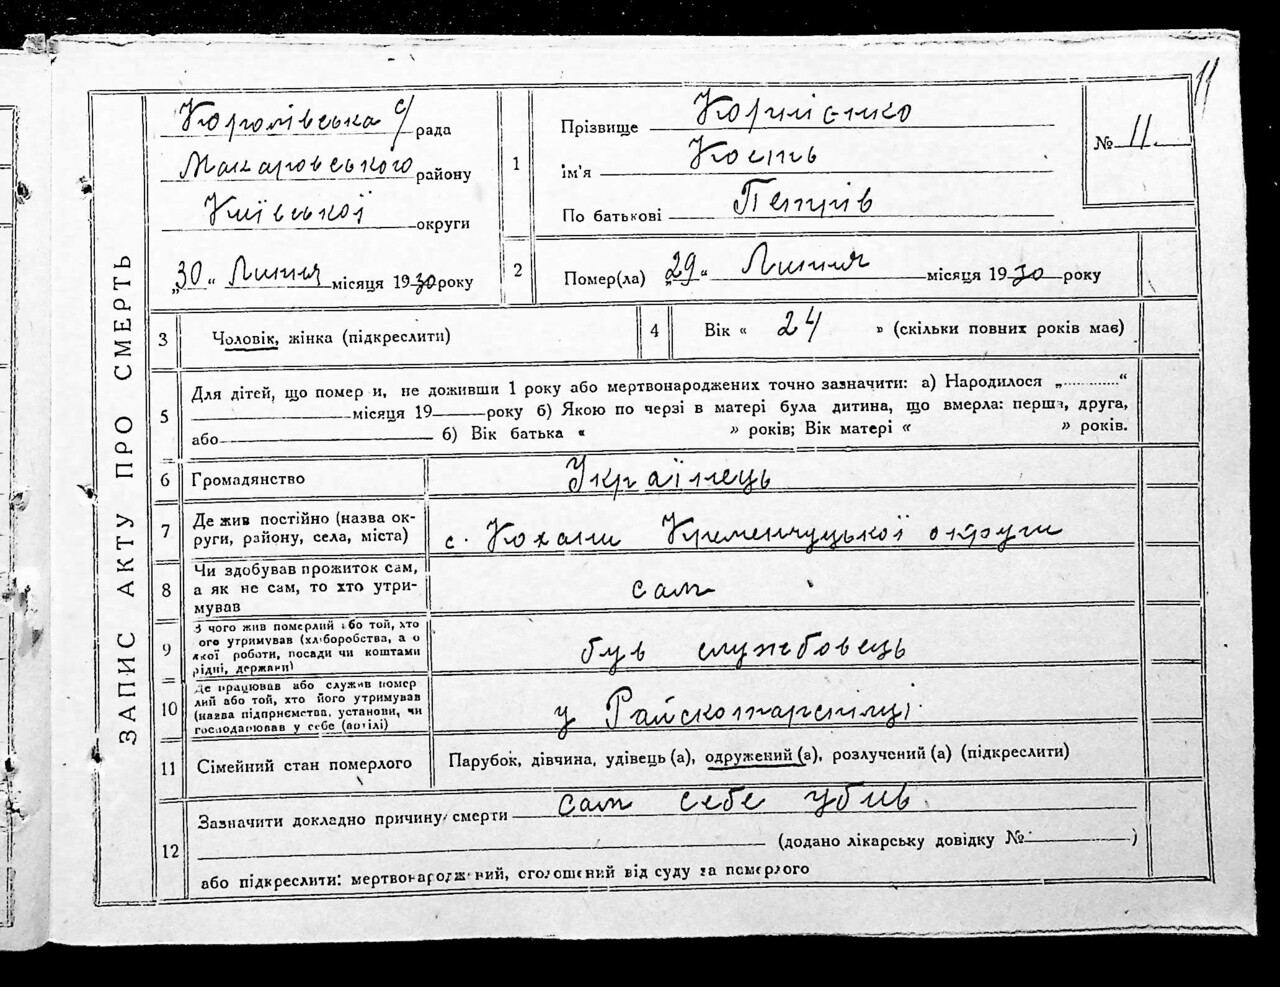 11
ЗАПИС АКТУ ПРО СМЕРТЬ
Королівська с/рада
Макаровського району
Київської округи
„30“ Липня місяця 1930 року
1
Прізвище Корнієнко
ім'я Кость
По батькові Петрів
№ 11.
2
Помер(ла) „29“ Липня місяця 1930 року
3
Чоловік, жінка (підкреслити)
4
Вік « 24 » (скільки повних років має)
5
Для дітей, що помер и, не доживши 1 року або мертвонароджених точно зазначити: а) Народилося „............“
місяця 19 року б) Якою по черзі в матері була дитина, що вмерла: перша, друга,
або б) Вік батька « » років; Вік матері « » років.
6
Громадянство
Українець
7
Де жив постійно (назва ок-
руги, району, села, міста)
с. Кохани Кременчуцької округи
8
Чи здобував прожиток сам,
а як не сам, то хто утри-
мував
сам
9
З чого жив померлий або той, хто
ого утримував (хліборобства, а о
якої роботи, посади чи коштами
рідні, держави)
був службовець
10
Де працював або служив помер
лий або той, хто його утримував
(назва підприємства, установи, чи
господарював у себе (артілі)
у
11
Сімейний стан померлого
Парубок, дівчина, удівець (а), одружений (а), розлучений (а) (підкреслити)
12
Зазначити докладно причину смерти сам себе убив
(додано лікарську довідку № )
або підкреслити: мертвонароджений, оголошений від суду за померлого